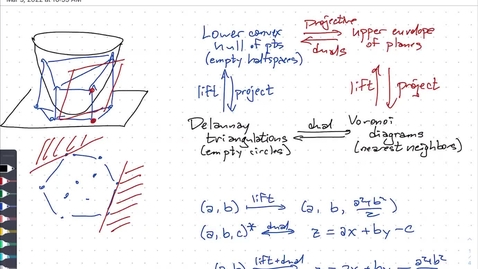 Mar 3, 2022 at 10:55 AM
Lower convex
hull of pts
(empty halfspaces)
projective
duals
upper envelope
of planes
lift
project
lift
project
Delaunay
triangulations
(empty circles)
dual
Voronoi
diagrams
(nearest neighbors)
(a, b) lift (a, b, a²+b²/2)
(a, b, c)* dual z = ax + by - c
(a, b) lift+dual z = ax + by - a²+b²